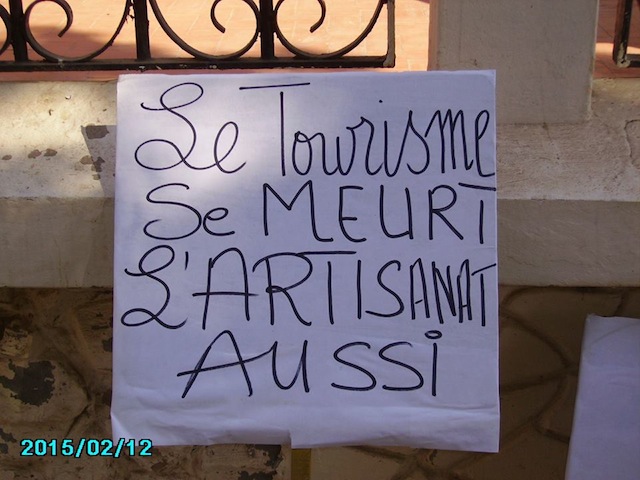 Le Tourisme
Se MEURT
L'ARTISANAT
AUSSi
2015/02/12